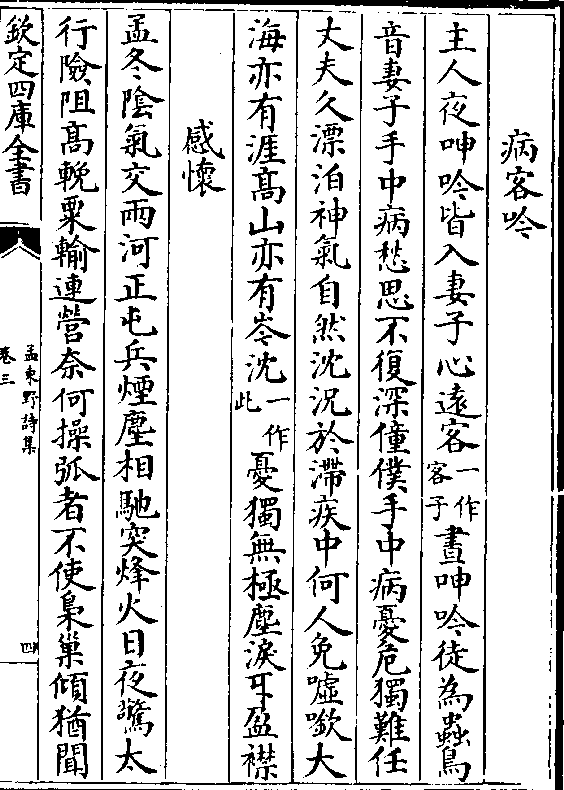 病客吟
主人夜呻吟皆入妻子心遠客一作客子晝呻吟徒為蟲鳥
音妻子手中病愁思不復深僮僕手中病憂危獨難任
丈夫久漂泊神氣自然沈況於滯疾中何人免噓欷大
海亦有涯高山亦有岑沈一作此憂獨無極塵淚互盈襟
感懷
孟冬陰氣交兩河正屯兵煙塵相馳突烽火日夜驚太
行險阻高輓粟輸連營奈何操弧者不使梟巢傾猶聞
欽定四庫全書
孟東野詩集
卷三
四